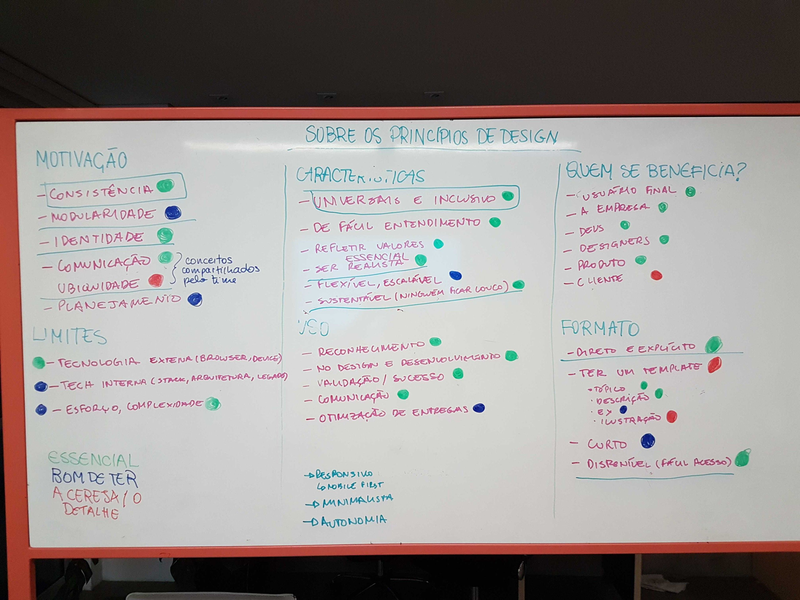 SOBRE OS PRINCÍPIOS DE DESIGN
MOTIVAÇÃO
- CONSISTÊNCIA
- MODULARIDADE
- IDENTIDADE
- COMUNICAÇÃO
UBIQUIDADE
conceitos
compartilhados
pelo time
- PLANEJAMENTO
LIMITES
- TECNOLOGIA EXTENA (BROWSER, DEVICE)
- TECH INTERNA (STACK, ARQUITETURA, LEGADO)
- ESFORÇO, COMPLEXIDADE
ESSENCIAL
BOM DE TER
A CEREJA / O
DETALHE
CARACTERÍSTICAS
- UNIVERSAIS E INCLUSIVO
- DE FÁCIL ENTENDIMENTO
- REFLETIR VALORES
ESSENCIAL
- SER REALISTA
- FLEXÍVEL, ESCALÁVEL
- SUSTENTÁVEL (NINGUÉM FICAR LOUCO)
USO
- RECONHECIMENTO
- NO DESIGN E DESENVOLVIMENTO
- VALIDAÇÃO / SUCESSO
- COMUNICAÇÃO
- OTIMIZAÇÃO DE ENTREGAS
→ RESPONSIVO
↳ MOBILE FIRST
→ MINIMALISTA
→ AUTONOMIA
QUEM SE BENEFICIA?
- USUÁRIO FINAL
- A EMPRESA
- DEVS
- DESIGNERS
- PRODUTO
- CLIENTE
FORMATO
- DIRETO E EXPLÍCITO
- TER UM TEMPLATE
• TÓPICO
• DESCRIÇÃO
• EX
• ILUSTRAÇÃO
- CURTO
- DISPONÍVEL (FÁCIL ACESSO)